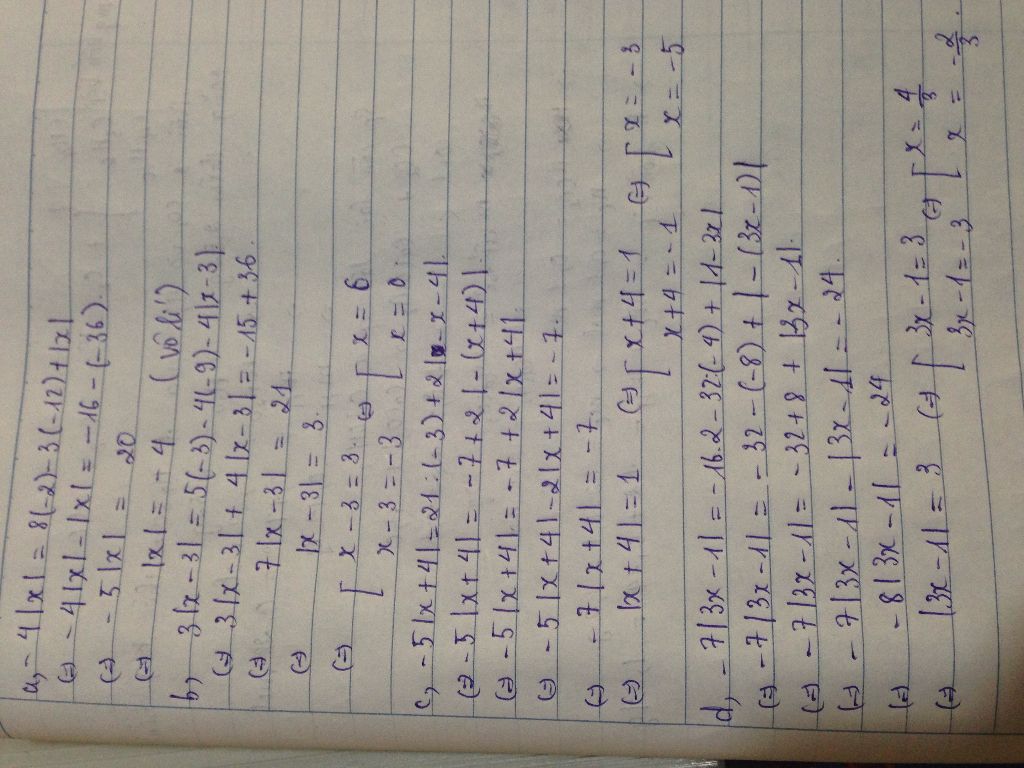 a, - 4|x| = 8(-2) - 3(-12) + |x|
(=) - 4|x| - |x| = -16 - (-36).
(=) - 5|x| = 20
(=) |x| = - 4 (vô lí)
b, 3|x-3| = 5(-3) - 4(-9) - 4|x-3|
(=) 3|x-3| + 4|x-3| = -15 + 36.
(=) 7|x-3| = 21
(=) |x-3| = 3.
(=) [ x-3=3 (=) [ x = 6
x-3=-3 x = 0.
c, -5|x+4| = 21:(-3) + 2|-x-4|.
(=) -5|x+4| = -7 + 2|-(x+4)|.
(=) -5|x+4| = -7 + 2|x+4|.
(=) -5|x+4| - 2|x+4| = -7.
(=) -7|x+4| = -7.
(=) |x+4| = 1 (=) [ x+4=1 (=) [ x = -3
x+4=-1 x = -5
d, -7|3x-1| = -16.2 - 32:(-4) + |1-3x|
(=) -7|3x-1| = -32 - (-8) + |-(3x-1)|
(=) -7|3x-1| = -32+8 + |3x-1|.
(=) -7|3x-1| - |3x-1| = -24.
(=) -8|3x-1| = -24
(=) |3x-1| = 3 (=) [ 3x-1=3 (=) [ x = 4/3
3x-1=-3 x = -2/3.